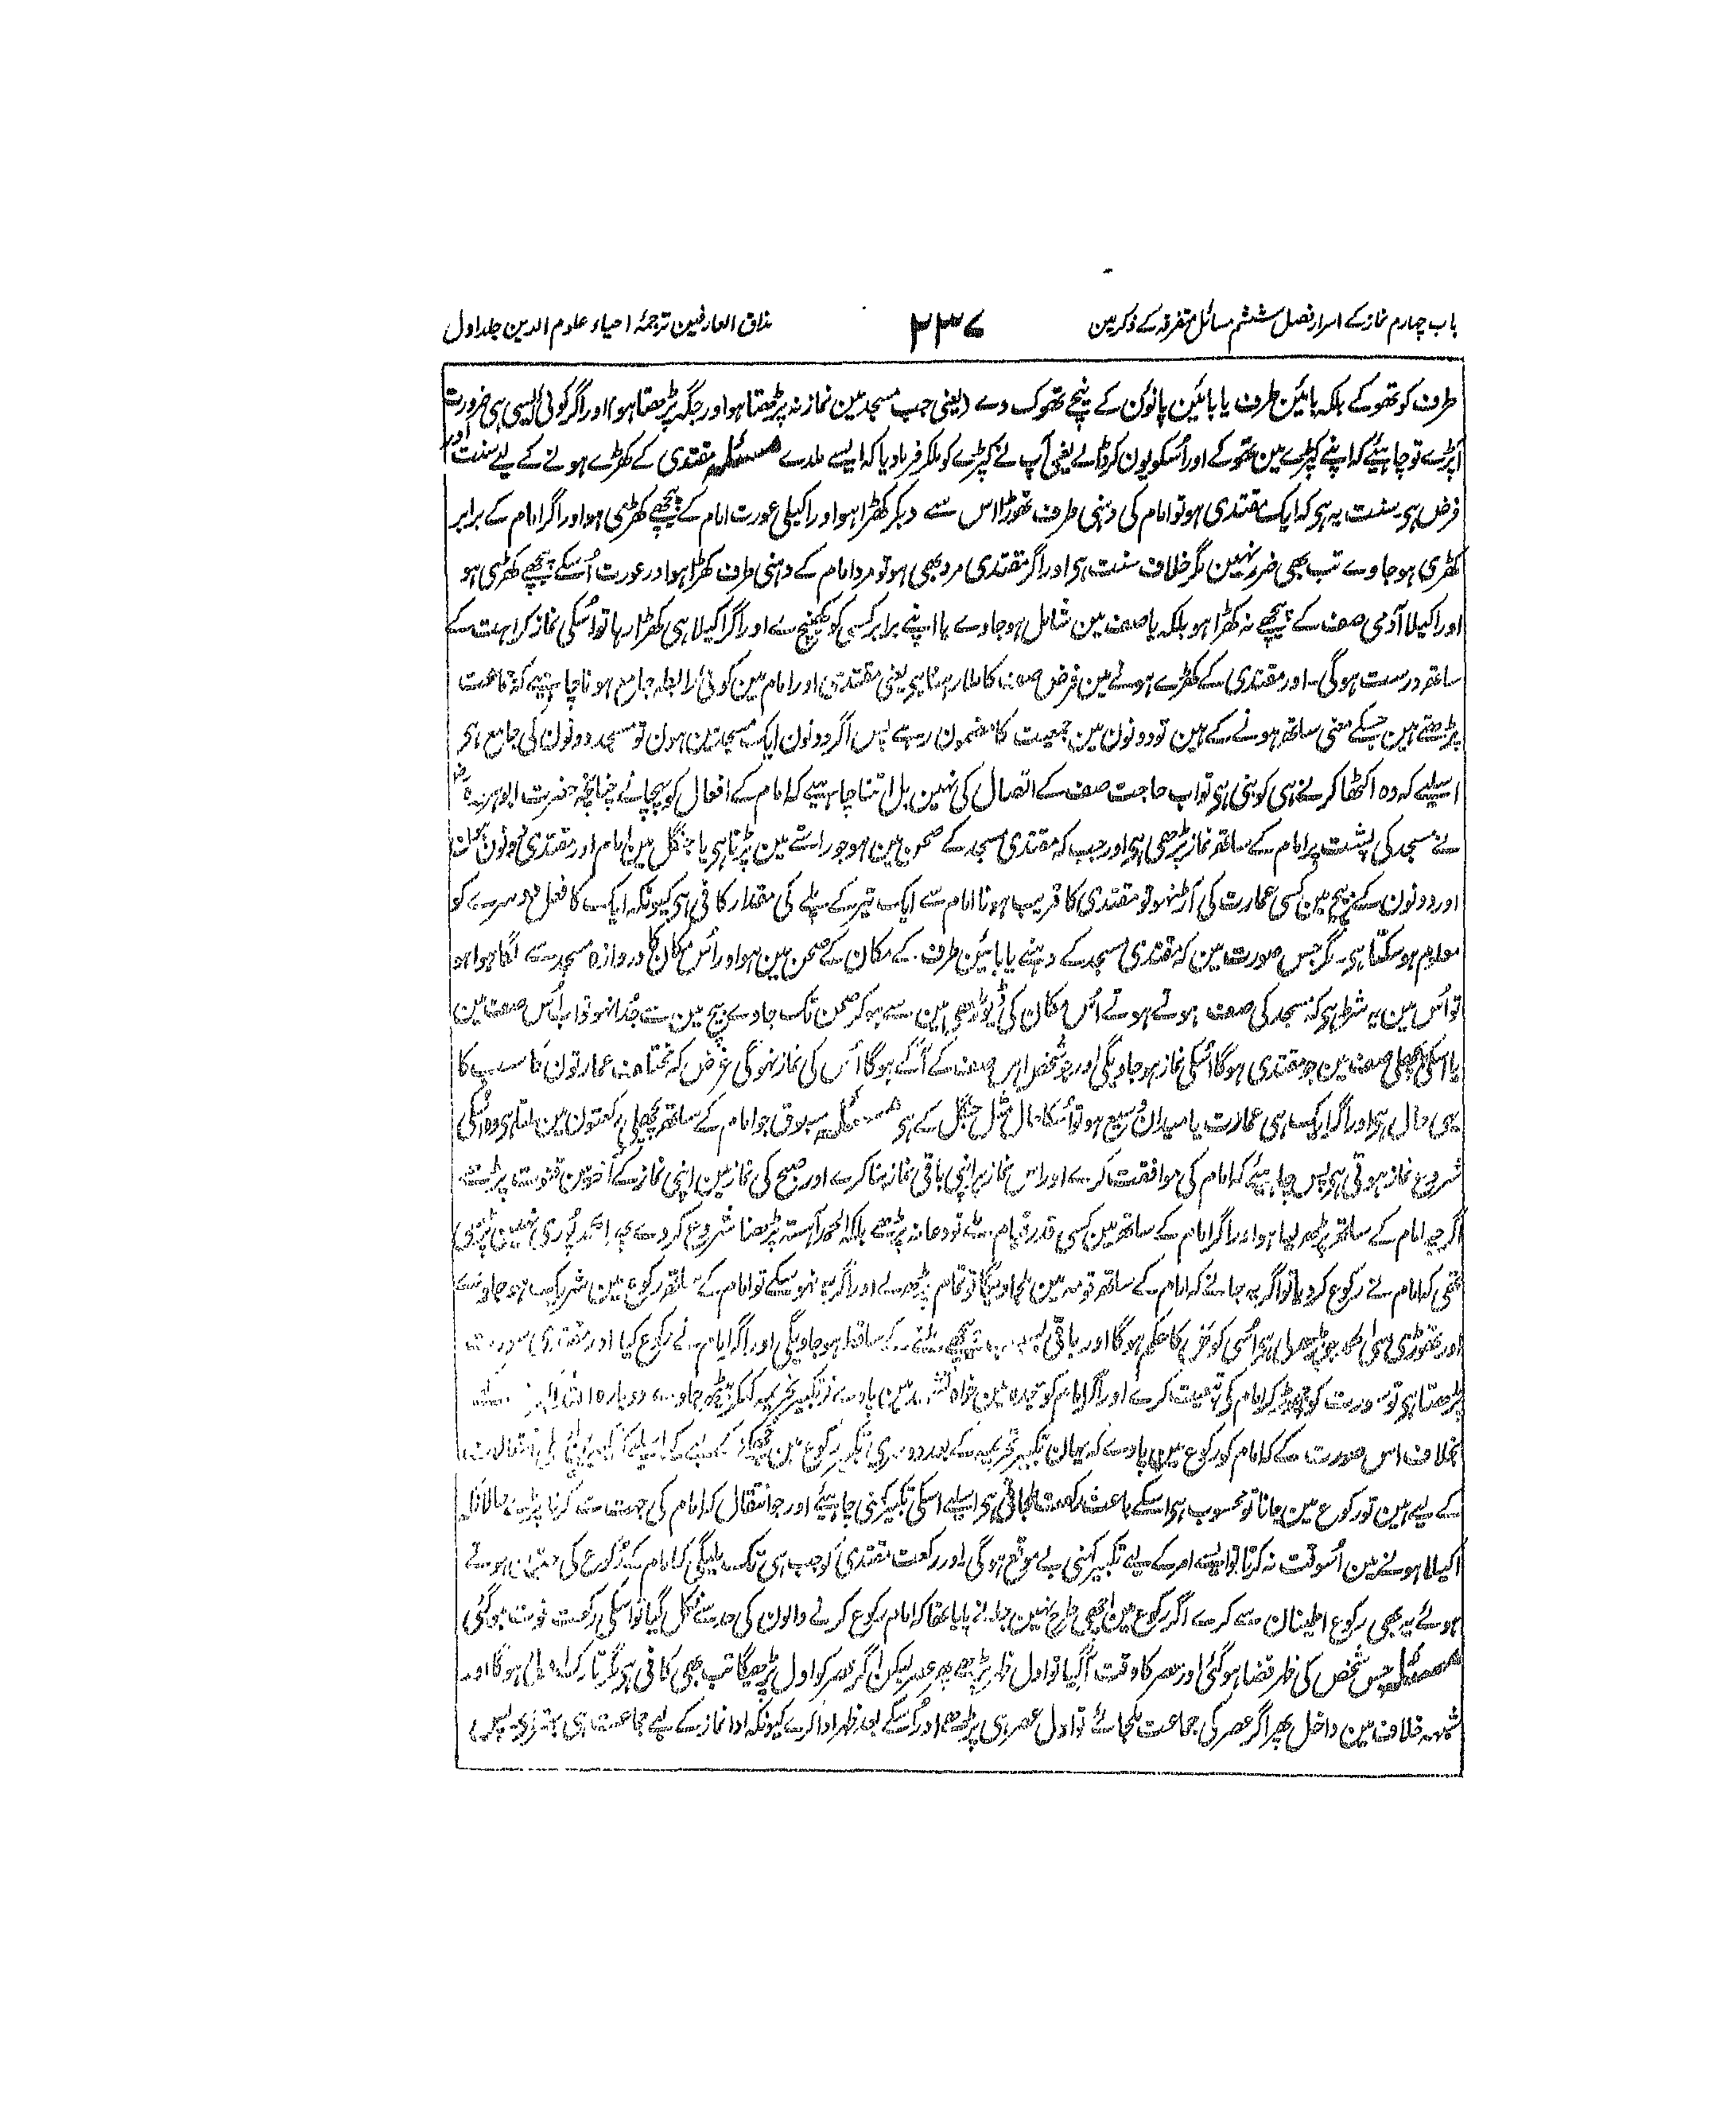 باب چہارم نماز کے اسرار فصل ششم مسائل متفرقہ کے ذکر مین ۲۳۷ مذاق العارفین ترجمۂ احیاء علوم الدین جلد اول
طرف کو تھوکے بلکہ بائین طرف یا بائین پانوُن کے نیچے تھوک دے (یعنی جب مسجد مین نماز نہ پڑھتا ہو اور جگہ پڑھتا ہو) اور اگر کوئی ایسی ہی ضرورت
آپڑے تو چاہیئے کہ اپنے کپڑے مین تھوکے اور اُسکو یون کر ڈالے یعنی آپ نے کپڑے کو ملکر فرمادیا کہ ایسے ملدے مسئلہ مقتدی کے کھڑے ہونے کے لیے سنت اور
فرض ہی سنت یہ ہی کہ ایک مقتدی ہو تو امام کی دہنی طرف تھوڑا اس سے دبکر کھڑا ہو اور اکیلی عورت امام کے پیچھے کھڑی ہو اور اگر امام کے برابر
کھڑی ہو جاوے تب بھی ضرر نہین مگر خلاف سنت ہی اور اگر مقتدی مرد بھی ہو تو مرد امام کے دہنی طرف کھڑا ہو اور عورت اُسکے پیچھے کھڑی ہو
اور اکیلا آدمی صف کے پیچھے نہ کھڑا ہو بلکہ یا صف مین شامل ہو جاوے یا اپنے برابر کسی کو کھینچ لے اور اگر اکیلا ہی کھڑا رہا تو اُسکی نماز کراہت کے
ساتھ درست ہوگی۔ اور مقتدی کے کھڑے ہونے مین فرض صف کا ملا رہنا ہی یعنی مقتدی اور امام مین کوئی رابطہ جامع ہونا چاہیے کہ جماعت
پڑھتے ہین جسکے معنی ساتھ ہونے کے ہین تو دونون مین جمعیت کا مضمون رہے پس اگر دونون ایک مسجد مین ہون تو مسجد دونون کی جامع ہی
اسلیے کہ وہ اکٹھا کرنے ہی کو بنی ہی تو اب حاجت صف کے اتصال کی نہین بل اتنا چاہیے کہ امام کے افعال کو پہچانے چنانچہ حضرت ابو ہریرہ رض
نے مسجد کی پشت پر امام کے ساتھ نماز پڑھی ہی اور جب کہ مقتدی مسجد کے صحن مین ہو جو راستے مین پڑتا ہی یا جنگل مین امام اور مقتدی دونون ہون
اور دونون کے بیچ مین کسی عمارت کی آڑ نہو تو مقتدی کا قریب ہونا امام سے ایک تیر کے پلے کی مقدار کافی ہی کیونکہ ایک کا فعل دوسرے کو
معلوم ہو سکتا ہی۔ مگر جس صورت مین کہ مقتدی مسجد کے دہنے یا بائین طرف کے مکان کے صحن مین ہو اور اُس مکان کا دروازہ مسجد سے لگا ہوا ہو
تو اُس مین یہ شرط ہی کہ مسجد کی صف ہوتے ہوتے اُس مکان کی ڈیوڑھی مین سے ہو کر صحن تک جاوے بیچ مین سے جُدا نہو تو اب اُس صف مین
یا اُسکی پچھلی صف مین جو مقتدی ہوگا اُسکی نماز ہو جاویگی اور جو شخص اس صف کے آگے ہوگا اُس کی نماز نہوگی غرض کہ مختلف عمارتون کا سب کا
یہی حال ہی اور اگر ایک ہی عمارت یا میدان وسیع ہو تو اُسکا حال مثل جنگل کے ہی مسئلہ مسبوق جو امام کے ساتھ پچھلی رکعتون مین ملتا ہی وہ اُسکی
شروع نماز ہوتی ہی پس چاہیئے کہ امام کی موافقت کرے اور اس نماز پر اپنی باقی نماز بنا کرے اور صبح کی نماز مین اپنی نماز کے آخر مین قنوت پڑھے
اگرچہ امام کے ساتھ پڑھ لیا ہو اور اگر امام کے ساتھ مین کسی قدر قیام ملے تو دعا نہ پڑھے بلکہ الحمد آہستہ پڑھنا شروع کر دے پھر الحمد پُوری نہین پڑھی
تھی کہ امام نے رکوع کر دیا تو اگر یہ جانے کہ امام کے ساتھ قومہ مین ملجاویگا تو تمام پڑھ لے اور اگر یہ نہو سکے تو امام کے ساتھ رکوع مین شریک ہو جاوے
اور تھوڑی سی الحمد جو پڑھ لی ہی اُسی کو کل کا حکم ہوگا اور باقی بسبب پیچھے ملنے کے ساقط ہو جاویگی اور اگر امام نے رکوع کیا اور مقتدی سورت
پڑھتا ہی تو سورت کو چھوڑ کر امام کی تبعیت کرے اور اگر امام کو سجدہ مین خواہ تشہد مین پاوے تو تکبیر تحریمہ کہکر بیٹھ جاوے دوبارہ اللہ اکبر
بخلاف اس صورت کے کہ امام کو رکوع مین پاوے کہ یہان تکبیر تحریمہ کے بعد دوسری تکبیر رکوع مین جھکنے
کے لیے ہین تو رکوع مین جانا تو محسوب ہی اسکے باعث رکعت ملجاتی ہی اسلیے اسکی تکبیر کہنی چاہیئے اور جو انتقال کہ امام کی جہت سے کرنا پڑے حالانکہ
اکیلا ہونے مین اُسوقت نہ کرتا تو ایسے امر کے لیے تکبیر کہنی بے موقع ہوگی اور رکعت مقتدی کو جب ہی تک ملیگی کہ امام کے رکوع کی حد مین ہوتے
ہوئے یہ بھی رکوع اطمینان سے کرے اگر رکوع مین اچھی طرح نہین جانے پایا تھا کہ امام رکوع کرنے والون کی حد سے نکل گیا تو اسکی رکعت فوت ہو گئی
مسئلہ جس شخص کی ظہر قضا ہو گئی اور عصر کا وقت آ گیا تو اول ظہر پڑھے پھر عصر لیکن اگر عصر کو اول پڑھیگا تب بھی کافی ہی مگر تارک اولی ہوگا اور
شبہہ خلاف مین داخل پھر اگر عصر کی جماعت ملجائے تو اول عصر ہی پڑھے اور اُسکے بعد ظہر ادا کرے کیونکہ ادا نماز کے لیے جماعت ہی بہتر ہی پس